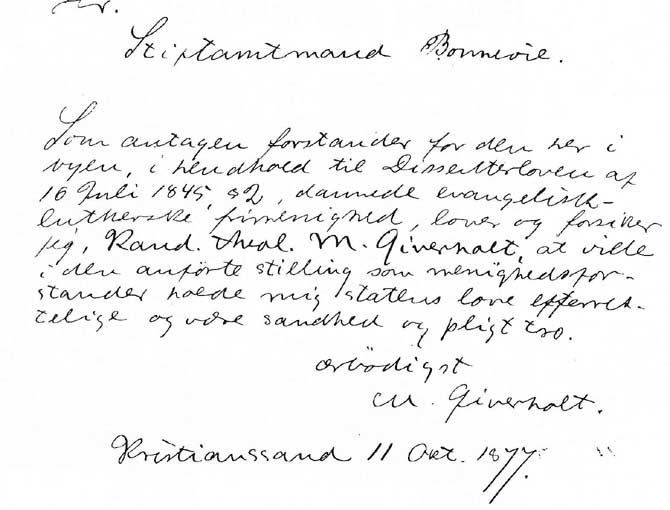 Hr.
Stiftamtmand Bonnevie.
Som antagen forstander for den her i
byen, i henhold til Dissenterloven af
16 Juli 1845, §2, dannede evangelisk-
lutherske frimenighed, lover og forsikrer
jeg, Kand. theol. M. Giverholt, at ville
i den anførte stilling som menighedsfor-
stander holde mig statens love efterret-
telige og være sandhed og pligt tro.
ærbødigst
M. Giverholt.
Kristianssand 11 Okt. 1877.